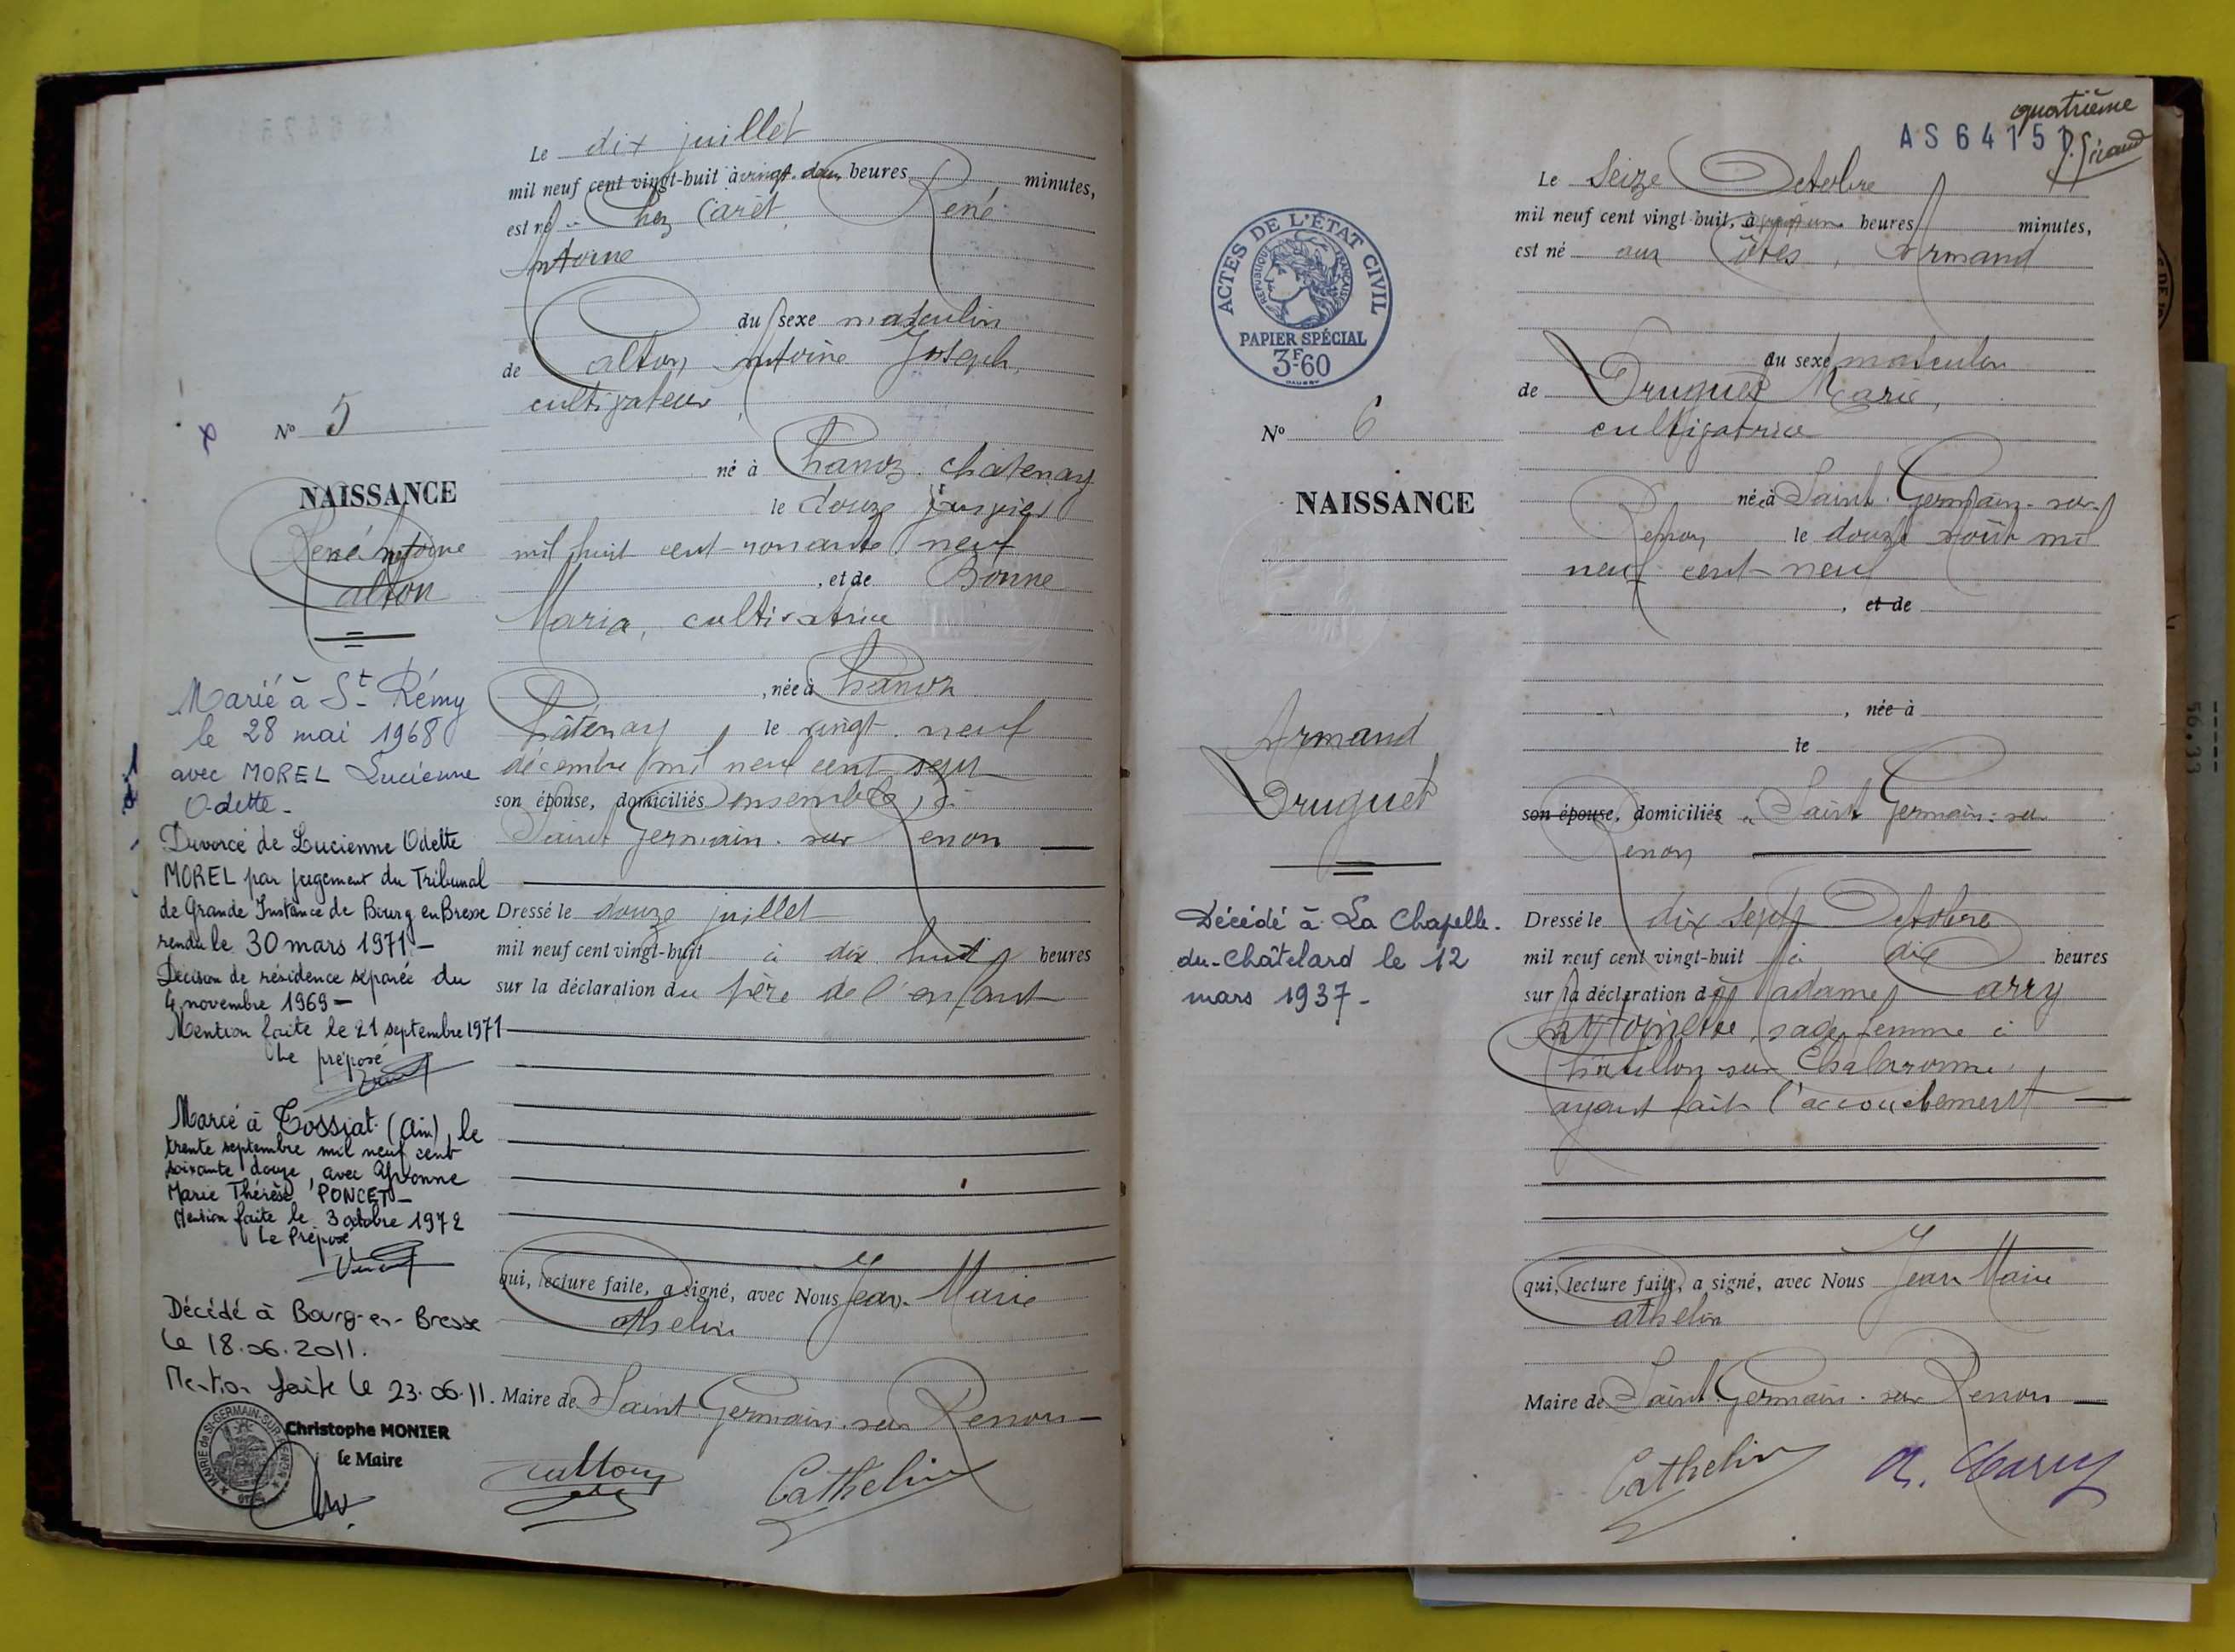 Le dix juillet
mil neuf cent vingt-huit à vingt-deux heures minutes,
est né chez Carét, René
Antoine
du sexe masculin
de Calton Antoine Joseph,
cultivateur
né à Chanoz-Châtenay
le douze janvier
mil huit cent nonante neuf
, et de Bonne
Maria, cultivatrice
, née à Chanoz
Châtenay, le vingt-neuf
décembre mil neuf cent sept
son épouse, domiciliés ensemble, à
Saint Germain-sur Renon
Dressé le douze juillet
mil neuf cent vingt-huit à dix huit heures
sur la déclaration du père de l'enfant
qui, lecture faite, a signé, avec Nous Jean-Marie
Cathelin
Maire de Saint Germain-sur Renon
Calton
Cathelin
No 5
NAISSANCE
René Antoine
Calton
Marié à St Rémy
le 28 mai 1968
avec MOREL Lucienne
Odette -
Divorcé de Lucienne Odette
MOREL par jugement du Tribunal
de Grande Instance de Bourg en Bresse
rendu le 30 mars 1971 -
Décision de résidence séparée du
4 novembre 1969 -
Mention faite le 21 septembre 1971
Le préposé
Marié à Tossiat (Ain), le
trente septembre mil neuf cent
soixante douze, avec Yvonne
Marie Thérèse PONCET -
Mention faite le 3 octobre 1972
Le Préposé
Décédé à Bourg-en-Bresse
le 18.06.2011.
Mention faite le 23.06.11.
MAIRIE de St-GERMAIN-SUR-RENON
Christophe MONIER
le Maire
quatrième
AS 64151
ACTES DE L'ÉTAT CIVIL
RÉPUBLIQUE FRANÇAISE
PAPIER SPÉCIAL
3F-60
No 6
NAISSANCE
Armand
Druguet
Décédé à La Chapelle-
du-Châtelard le 12
mars 1937 -
Le Seize Octobre
mil neuf cent vingt-huit, à vingt un heures minutes,
est né aux Côtes, Armand
du sexe masculin
de Druguet Marie,
cultivatrice
née à Saint-Germain-sur-
Renon le douze août mil
neuf cent neuf
, et de
, née à
le
son épouse, domiciliée à Saint Germain-sur
Renon
Dressé le dix sept Octobre
mil neuf cent vingt-huit à dix heures
sur la déclaration de Madame Carry
Antoinette, sage femme à
Châtillon sur Chalaronne,
ayant fait l'accouchement
qui, lecture faite, a signé, avec Nous Jean Marie
Cathelin
Maire de Saint Germain-sur Renon
Cathelin
A. Carry